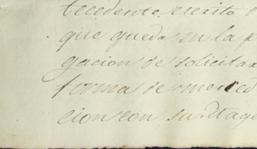 tecedente escrito
que queda en la p
gacion de solicitar
firmas de
cion con su